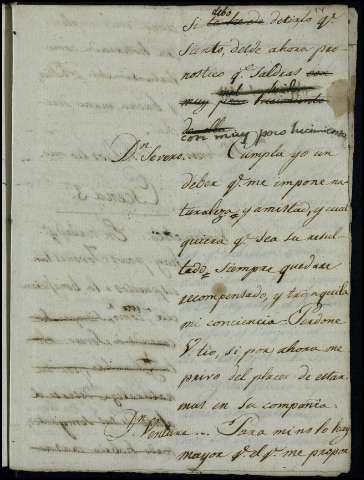 debo
Si decirlo qᵉ
siento, desde ahora pro-
nostico qᵉ saldras con
muy poco lucimiento
de ella
con muy poco lucimiento
Dⁿ. Severo. Cumpla yo un
deber qᵉ me impone na-
turaleza, y amistad, y cual
quiera qᵉ sea su resul-
tado siempre quedare
recompensado, y tranquila
mi conciencia. Perdone
V. tio, si por ahora me
privo del placer de estar
mas en su compañia.
Dⁿ. Ventura... Para mi no lo hay
mayor qᵉ el qᵉ me propor